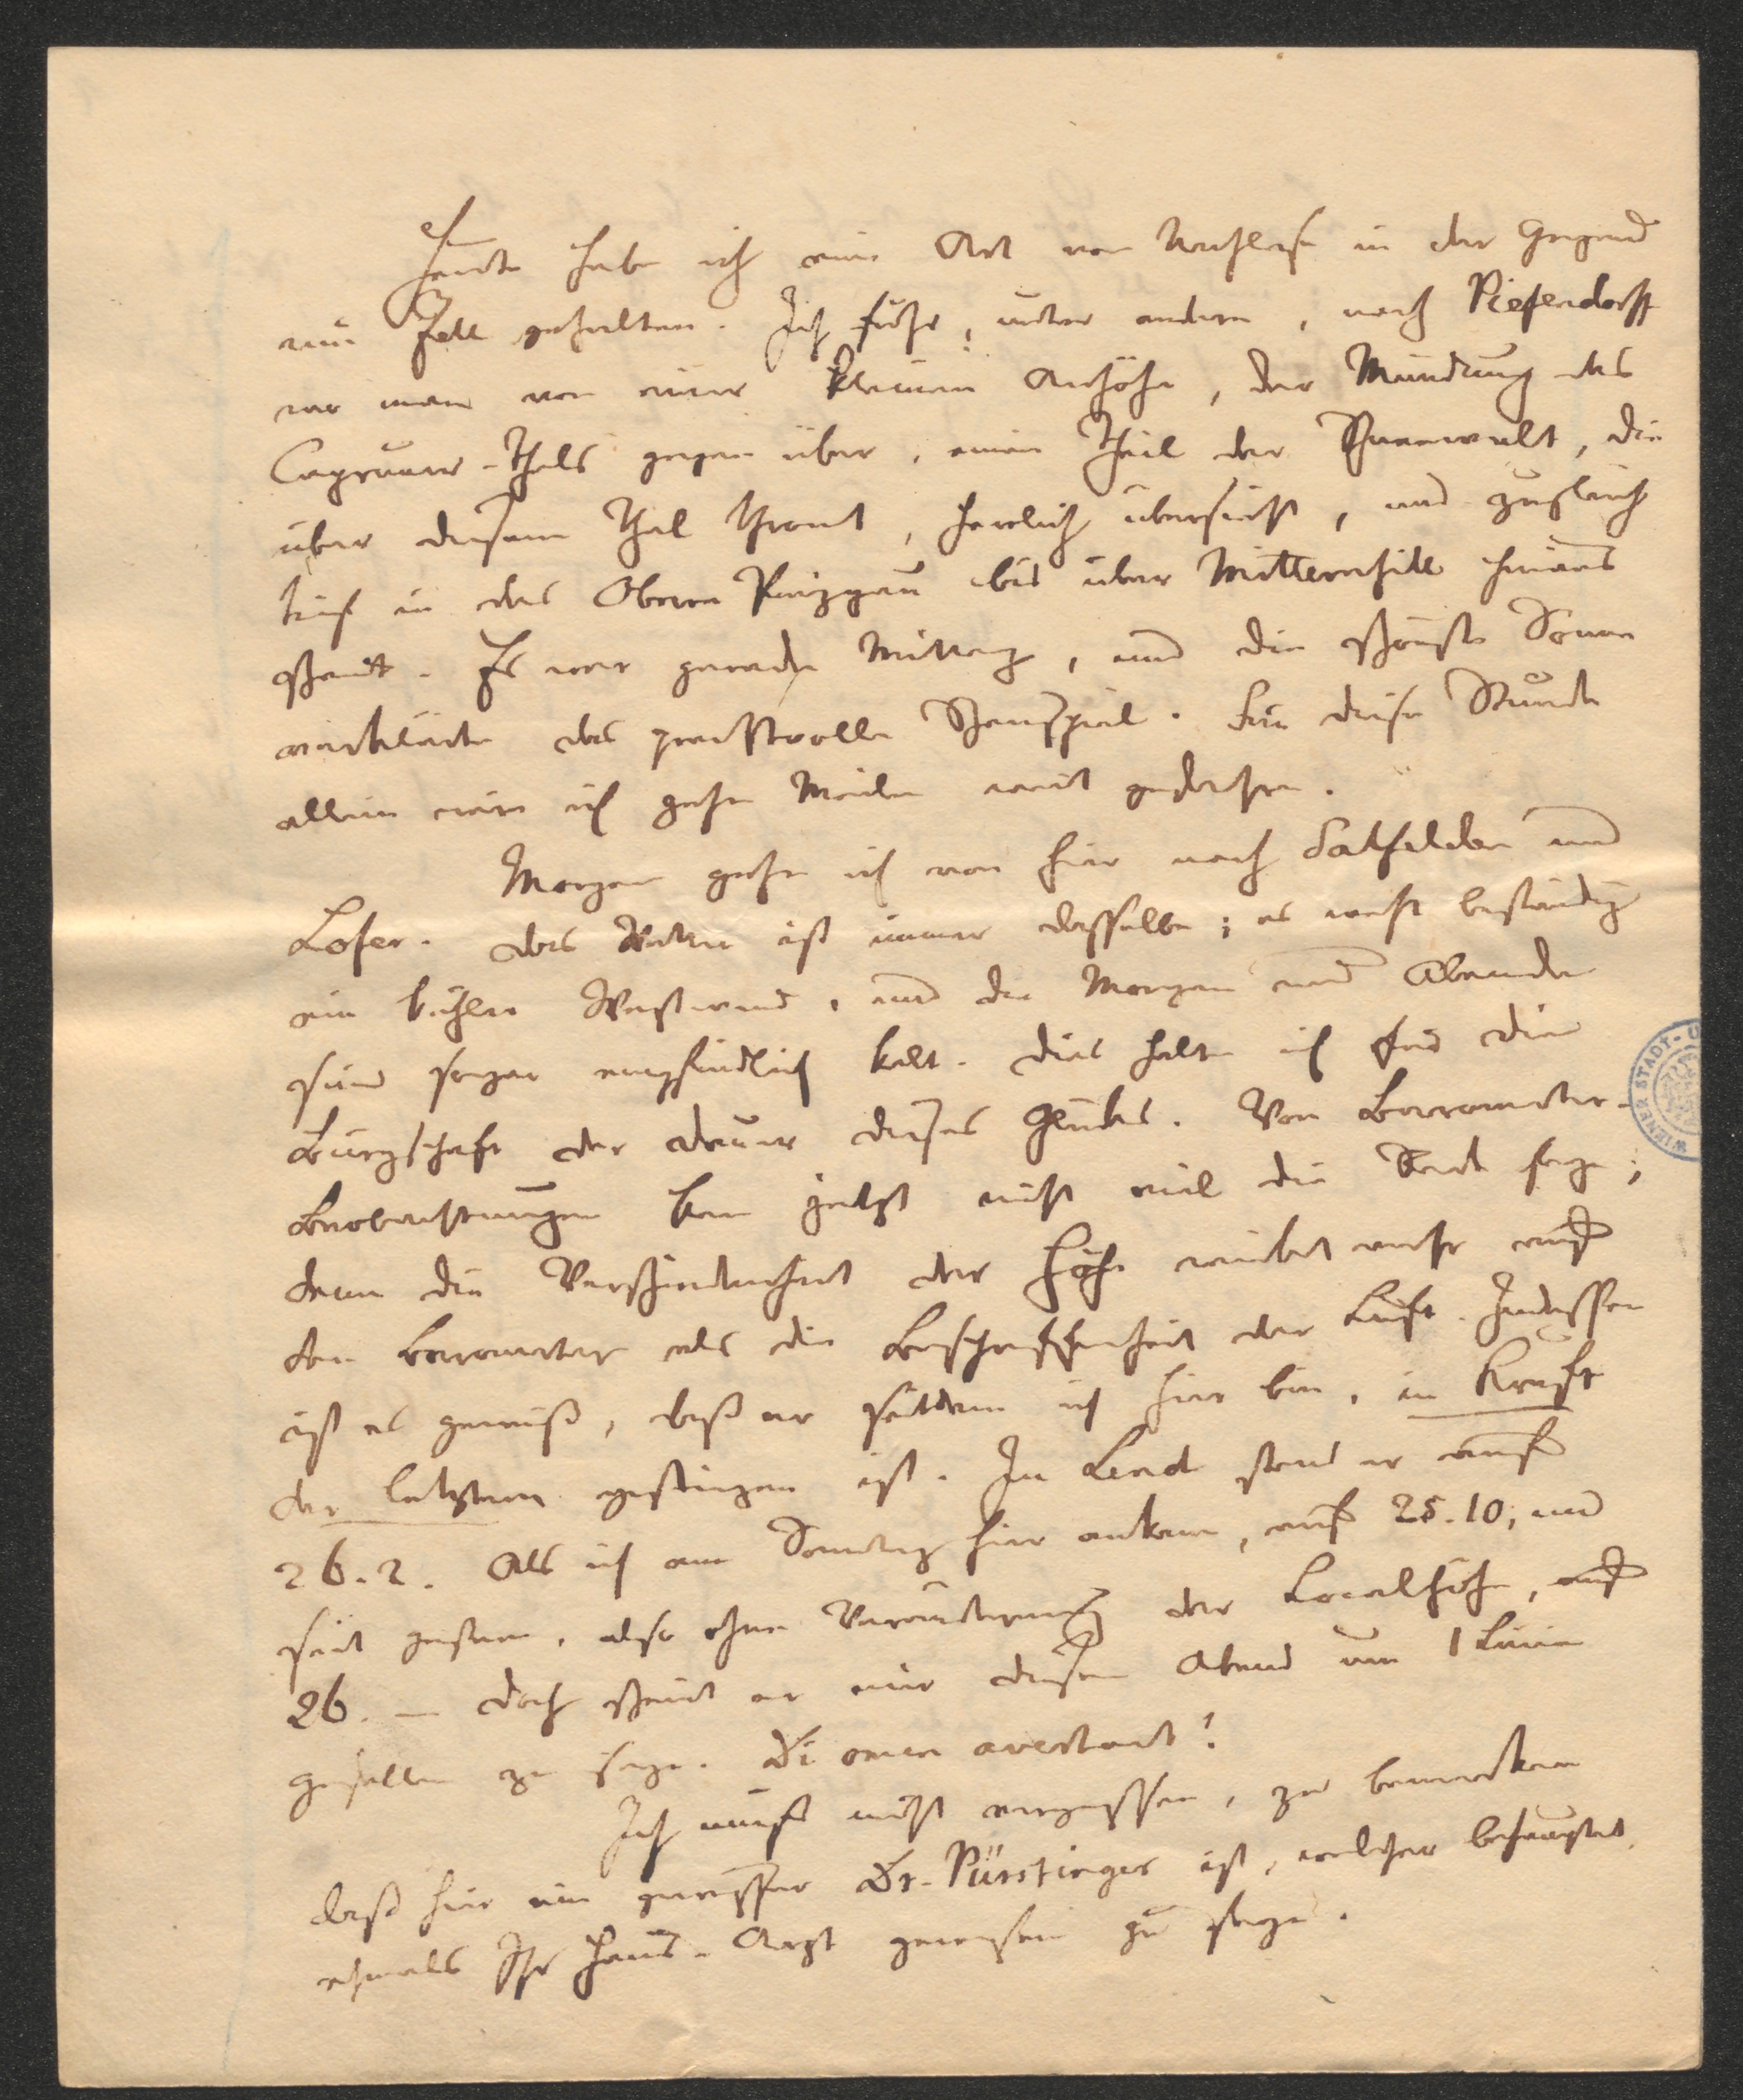 Heute habe ich eine Art von Nachlese in der Gegend
um Zell gehalten. Ich fuhr, unter andern, nach Piesendorff
wo man von einer kleinen Anhöhe, der Mündung des
Capruner-Thals gegen über, einen Theil der Schneewelt, die
über diesem Thal thront, herrlich übersieht, und zugleich
tief in das Obere Pinzgau bis über Mittersill hinaus
schaut. Es war gerade Mittag, und die schönste Sonne
verklärte das prachtvolle Schauspiel. Für diese Stunde
allein wäre ich zehn Meilen weit gefahren.
Morgen gehe ich von hier nach Salfelden und
Lofer. Das Wetter ist immer dasselbe; es weht beständig
ein kühler Westwind, und die Morgen und Abende
sind sogar empfindlich kalt. Dies halte ich für die
Bürgschaft der Dauer dieses Glückes. Von Barometer-
Beobachtungen kan jetzt nicht viel die Rede seyn;
denn die Verschiedenheit der Höhe wirkt mehr auf
den Barometer als die Beschaffenheit der Luft. Indessen
ist es gewiß, daß er seitdem ich hier bin, in Kraft
der letztern gestiegen ist. In Lend stand er auf
26.2. Als ich am Sonntag hier ankam, auf 25.10; und
seit gestern, also ohne Veränderung der Localhöhe, auf
26. — Doch scheint er mir diesen Abend um 1 Linie
gefallen zu seyn. Di omen avertant!
Ich muß nicht vergessen, zu bemerken
daß hier ein gewisser Dr. Pürstinger ist, welcher behauptet,
ehmals Ihr Haus-Arzt gewesen zu seyn.
WIENER STADT-